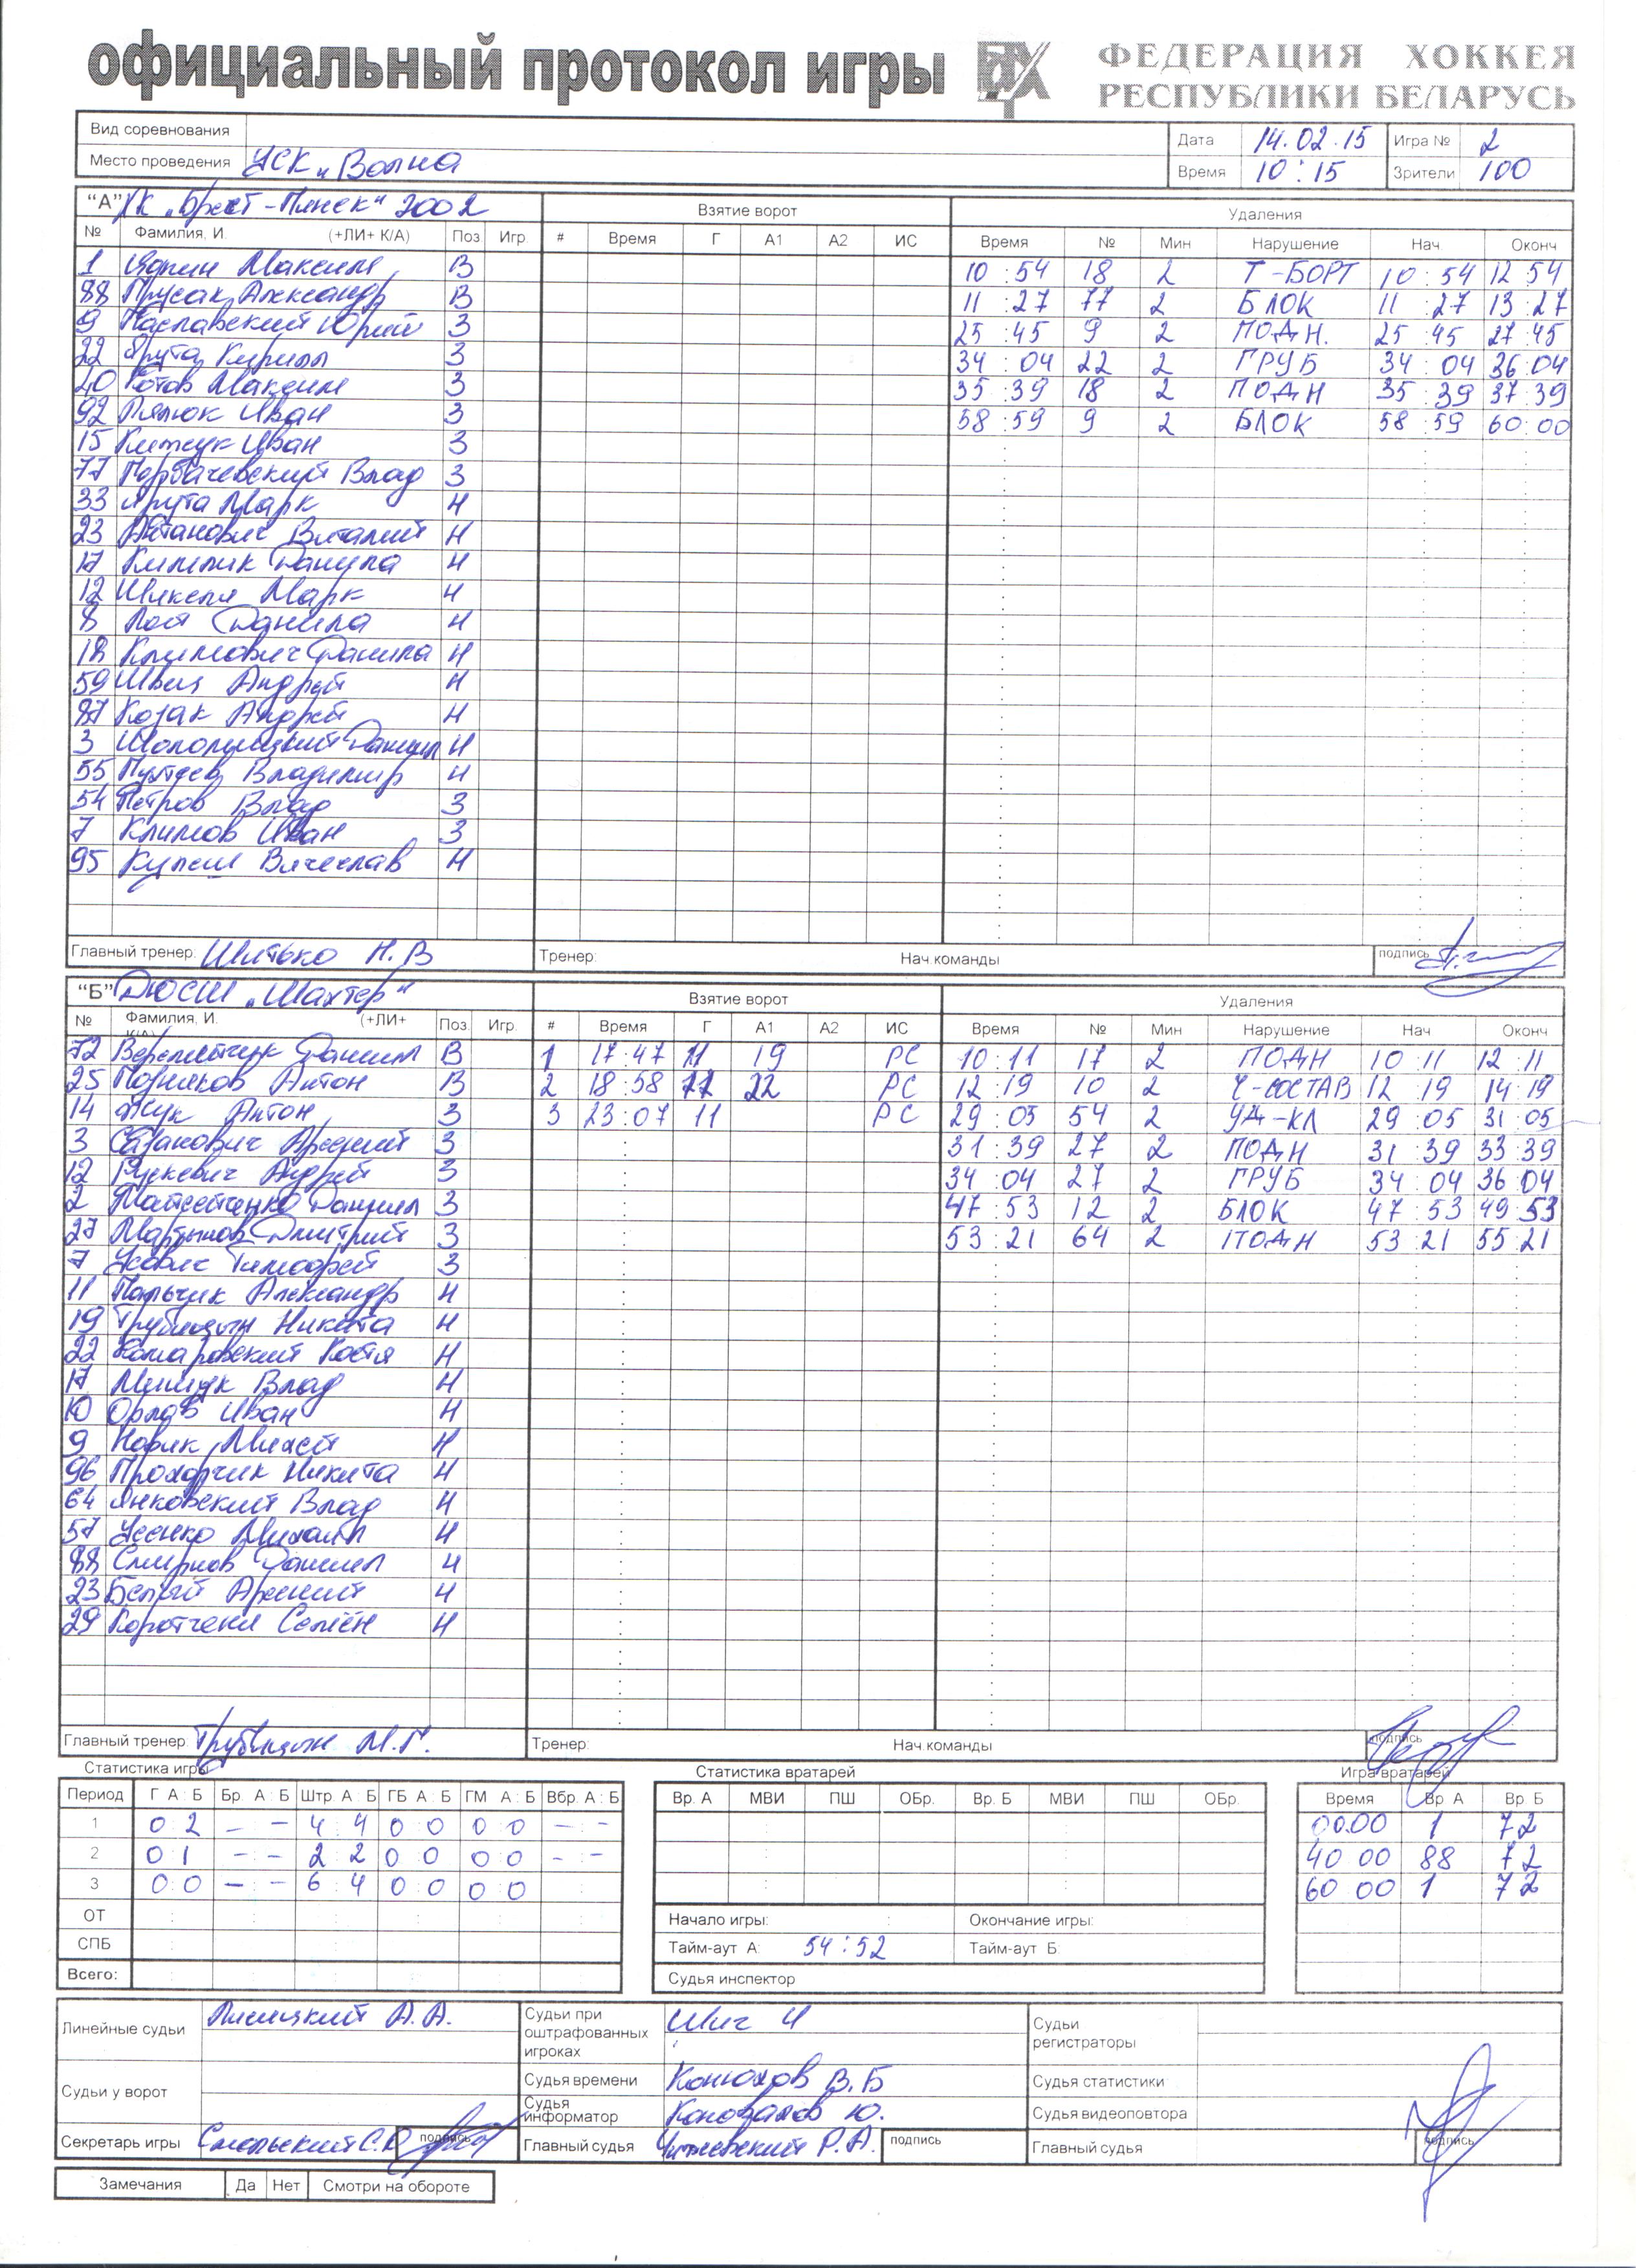 официальный протокол игры
ФЕДЕРАЦИЯ ХОККЕЯ
РЕСПУБЛИКИ БЕЛАРУСЬ
Вид соревнования Дата 14.02.15 Игра № 2
Место проведения УСК „Волна Время 10:15 Зрители 100
"А" ХК „Брест-Пинск" 2002 Взятие ворот Удаления
№ Фамилия, И. (+ЛИ+ К/А) Поз Игр. # Время Г А1 А2 ИС Время № Мин Нарушение Нач. Оконч
1 Максим В 10:54 18 2 Т-БОРТ 10:54 12 54
88 Прусак Александр В 11:27 77 2 БЛОК 11:27 13:27
9 Паславский Юрий З 25:45 9 2 ПОДН. 25:45 27:45
22 Ярута Кирилл З 34:04 22 2 ГРУБ 34:04 36:04
20 Котов Максим З 35:39 18 2 ПОДН 35:39 37:39
92 Иван З 58:59 9 2 БЛОК 58:59 60:00
15 Иван З
77 Горбачевский Влад З
33 Ярута Марк Н
23 Виталий Н
17 Данила Н
12 Марк Н
8 Данила Н
18 Климович Данила Н
59 Швец Андрей Н
87 Козак Андрей Н
3 Н
55 Владимир Н
54 Петров Влад З
7 Климов Иван З
95 Вячеслав Н
Главный тренер: Шитько Н.В Тренер: Нач.команды подпись
"Б" ДЮСШ „Шахтер" Взятие ворот Удаления
№ Фамилия, И. (+ЛИ+ К/А) Поз Игр. # Время Г А1 А2 ИС Время № Мин Нарушение Нач Оконч
72 Даниил В 1 17:47 11 19 РС 10:11 17 2 ПОДН 10:11 12:11
25 Антон В 2 18:58 77 22 РС 12:19 10 2 Ч-СОСТАВ 12:19 14:19
14 Жук Антон З 3 23:07 11 РС 29:05 54 2 УД-КЛ 29:05 31:05
3 Арсений З 31:39 27 2 ПОДН 31:39 33:39
12 Рускевич Андрей З 34:04 27 2 ГРУБ 34:04 36:04
2 Даниил З 47:53 12 2 БЛОК 47:53 49:53
27 Мартынов Дмитрий З 53:21 64 2 ПОДН 53:21 55:21
7 Усович Тимофей З
11 Пальчик Александр Н
19 Трубицын Никита Н
22 Комаровский Костя Н
17 Мишук Влад Н
10 Орлов Иван Н
9 Новик Михей Н
96 Прохорчик Никита Н
64 Янковский Влад Н
57 Усенко Михаил Н
88 Смирнов Даниил Н
23 Белый Арсений Н
29 Коротченя Семён Н
Главный тренер: Трубицын М.Г. Тренер: Нач.команды подпись
Статистика игры Статистика вратарей Игра вратарей
Период Г А:Б Бр. А:Б Штр А:Б ГБ А:Б ГМ А:Б Вбр. А:Б Вр. А МВИ ПШ ОБр. Вр. Б МВИ ПШ ОБр. Время Вр А Вр. Б
1 0 2 – – 4 4 0 0 0 0 – – 00.00 1 72
2 0 1 – – 2 2 0 0 0 0 – – 40 00 88 72
3 0 0 – – 6 4 0 0 0 0 60 00 1 72
ОТ Начало игры: Окончание игры:
СПБ Тайм-аут А: 54:52 Тайм-аут Б:
Всего: Судья инспектор
Линейные судьи А.А. Судьи при оштрафованных игроках Судьи регистраторы
Судьи у ворот Судья времени Конюхов В.Б Судья статистики
Судья информатор Коновалов Ю. Судья видеоповтора
Секретарь игры Смольский С. подпись Главный судья Чижевский Р.А. подпись Главный судья подпись
Замечания Да Нет Смотри на обороте